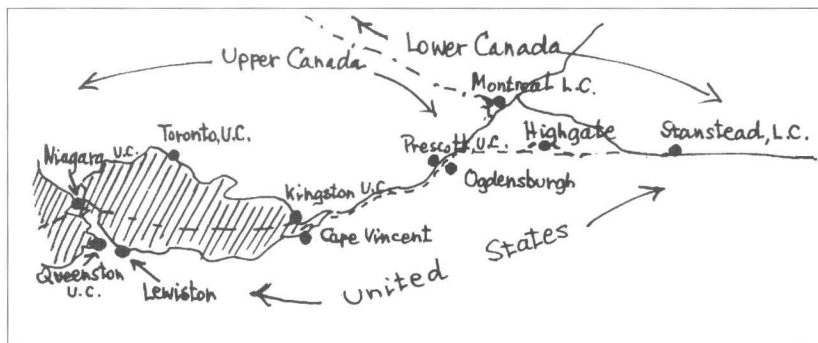 Lower Canada
Upper Canada
Montreal L.C.
Toronto, U.C.
Niagara U.C.
Prescott, U.C.
Highgate
Stanstead, L.C.
Ogdensburgh
Kingston U.C.
Cape Vincent
Queenston
U.C.
Lewiston
United States